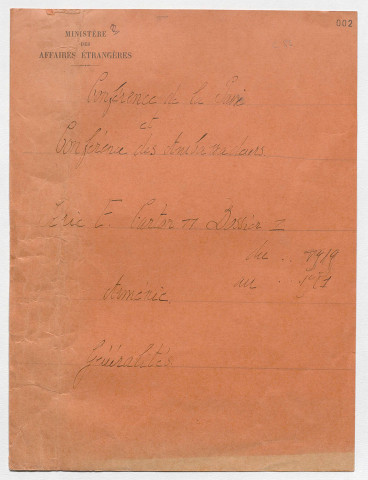 002
MINISTÈRE
DES
AFFAIRES ÉTRANGÈRES
Conférence de la Paix
et
Conférence des Ambassadeurs
Série E Carton Dossier
du 1919
Arménie au
Généralités